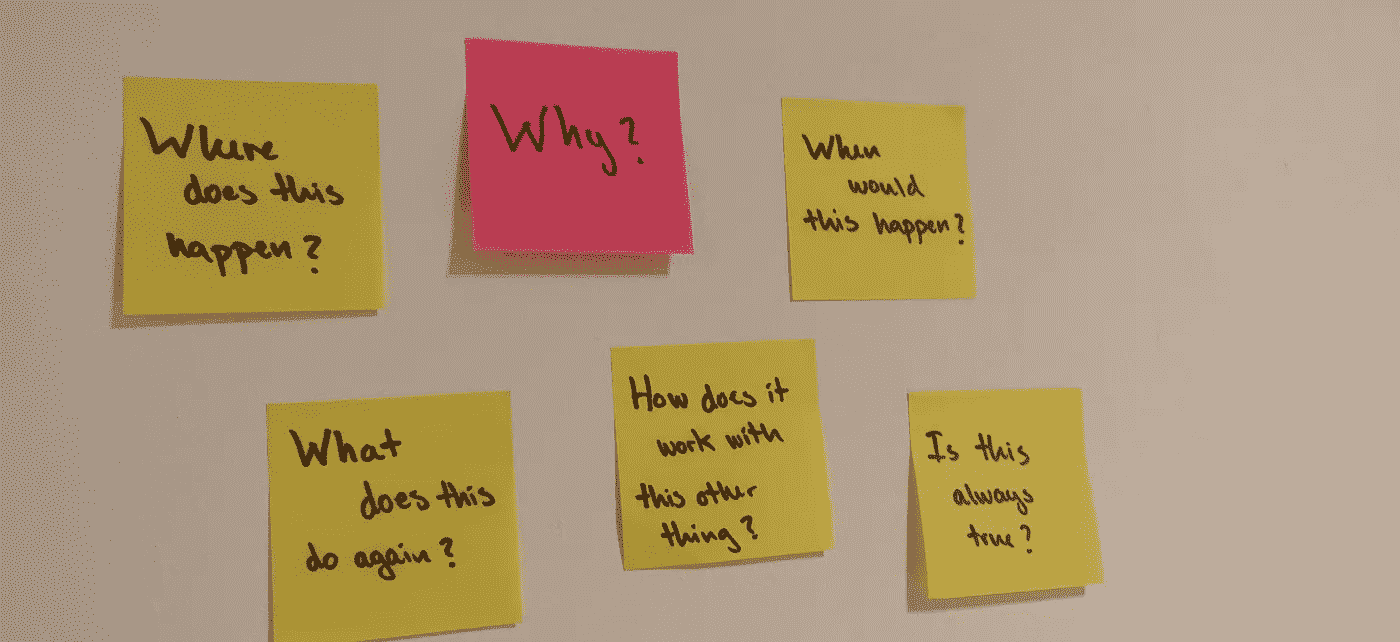 Where
does this
happen?
Why?
When
would
this happen?
What
does this
do again?
How does it
work with
this other
thing?
Is this
always
true?